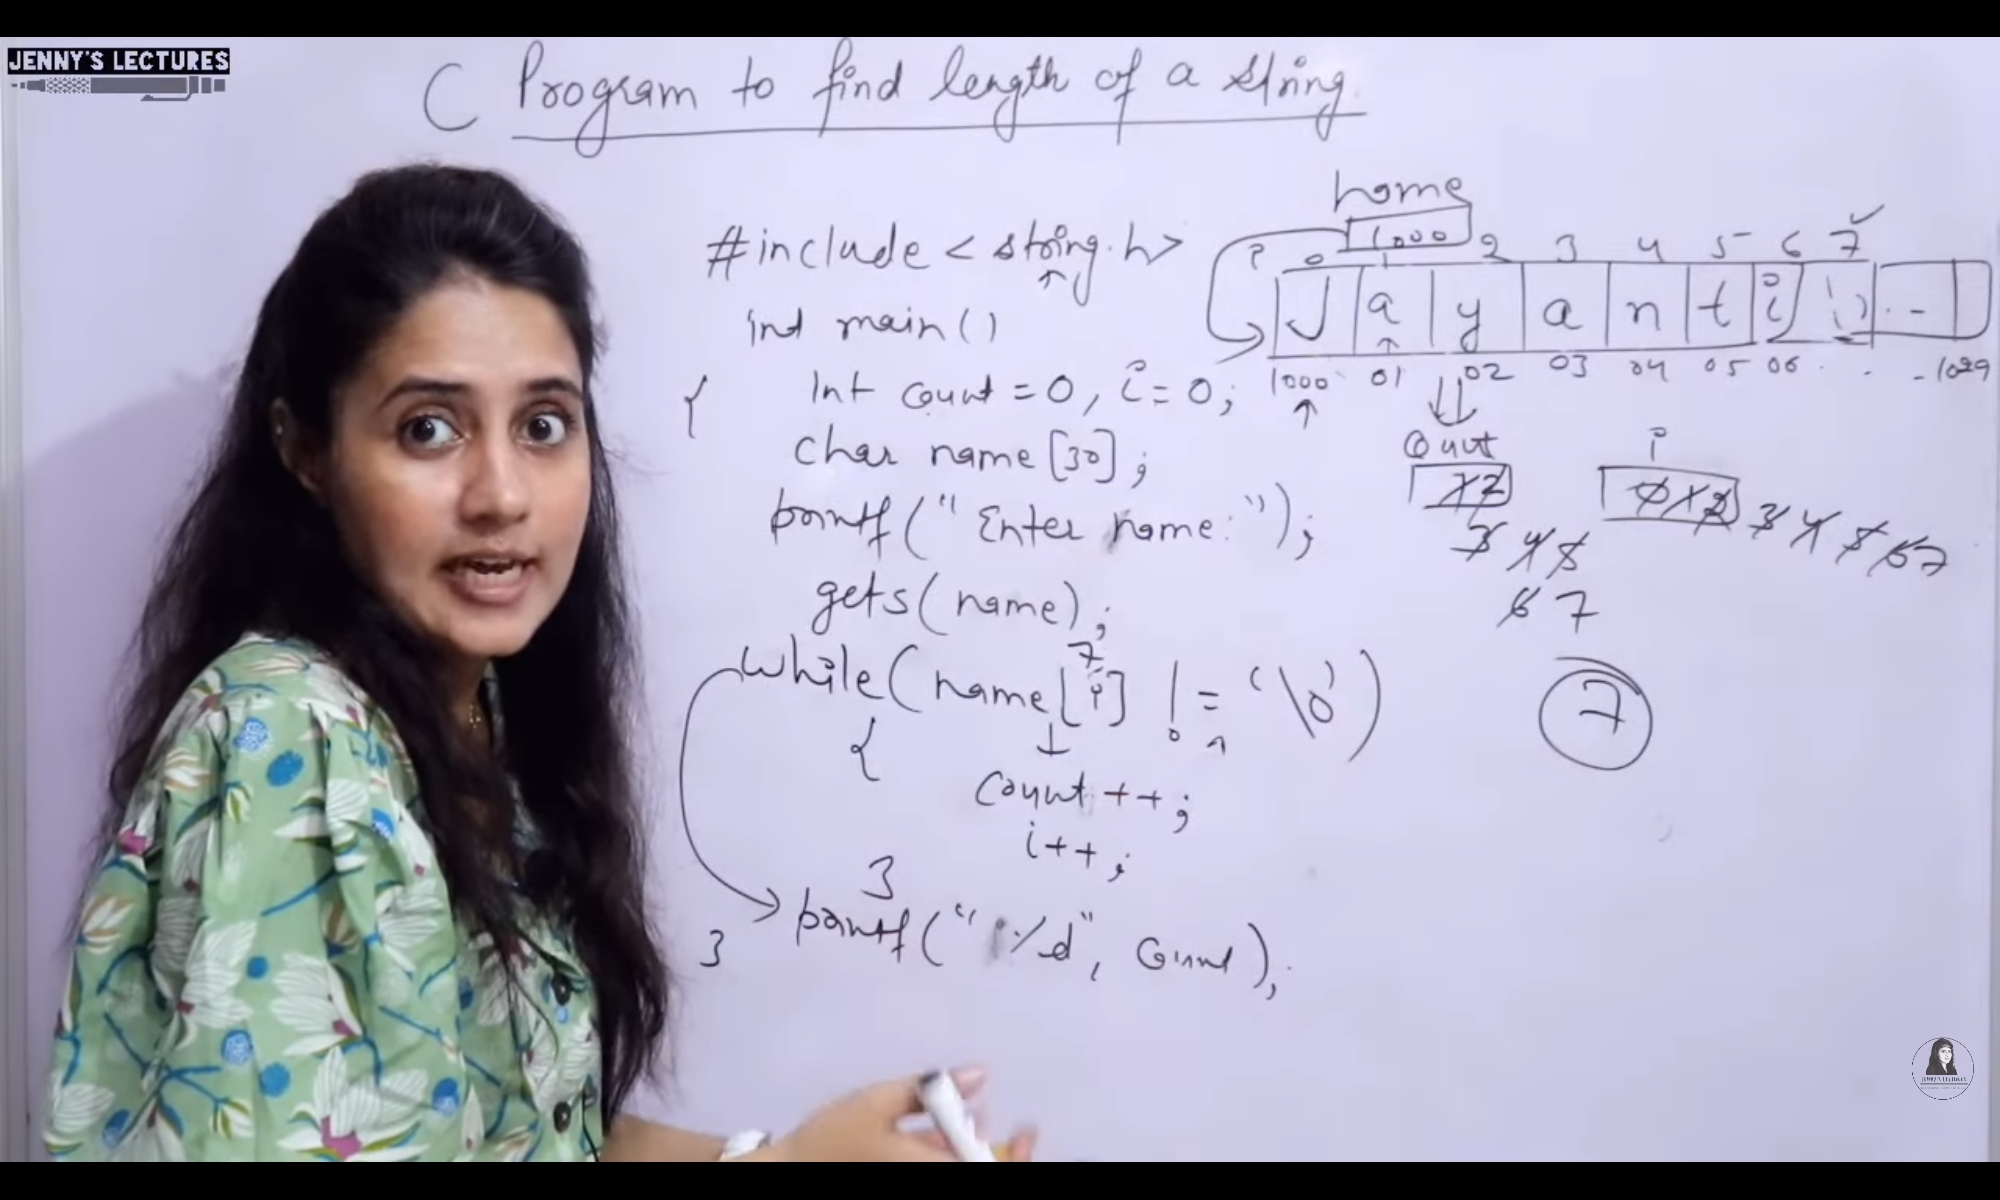 JENNY'S LECTURES
C Program to find length of a string.
#include < string.h>
int main()
{ int count = 0, i = 0;
char name [30];
printf(" Enter name: ");
gets(name);
7
while( name[i] != '\0')
{
count ++;
i++;
}
printf(" %d", count);
}
name
1000
0 1 2 3 4 5 6 7
J a y a n t i \0 . -
1000 01 02 03 04 05 06 . . - 1029
Count i
1 2 0 1 2 3 4 5 6 7
3 4 5
6 7
7